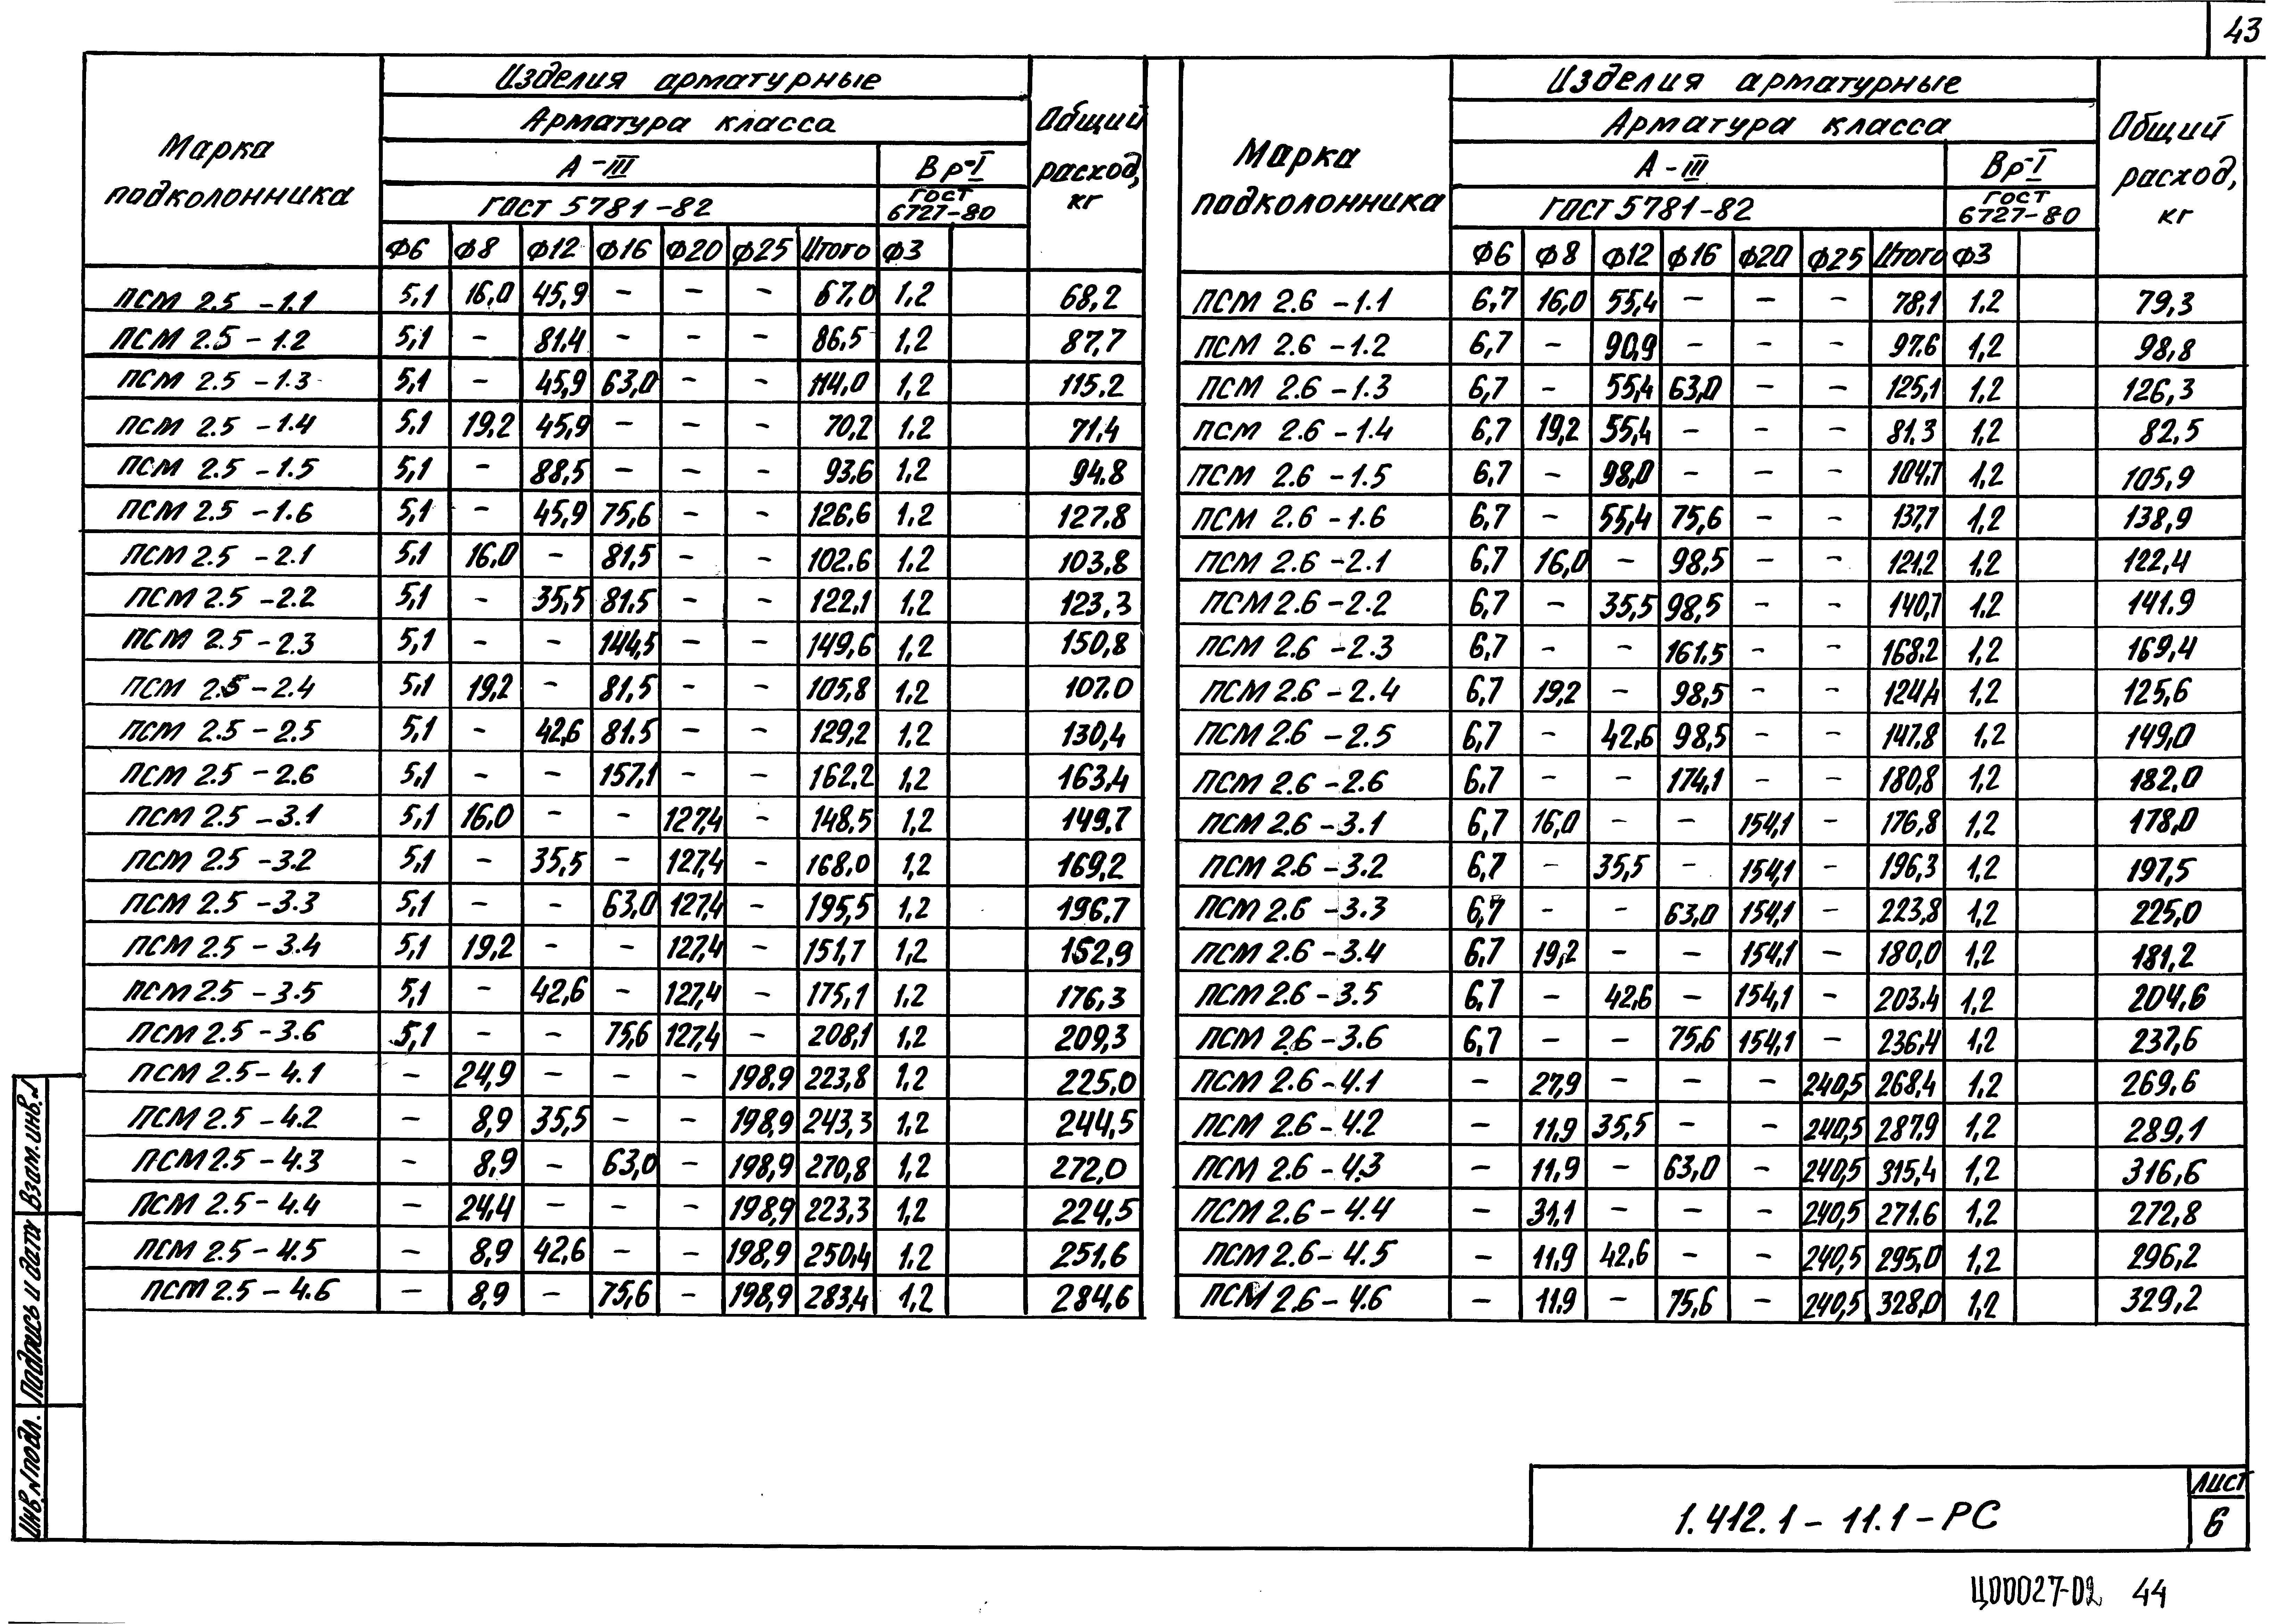 43
Марка подколонника
Изделия арматурные
Общий расход, кг
Арматура класса
А-III
Вр-I
ГОСТ 5781-82
ГОСТ 6727-80
Ф6 Ф8 Ф12 Ф16 Ф20 Ф25 Итого Ф3
ПСМ 2.5 - 1.1 5,1 16,0 45,9 - - - 67,0 1,2 68,2
ПСМ 2.5 - 1.2 5,1 - 81,4 - - - 86,5 1,2 87,7
ПСМ 2.5 - 1.3 5,1 - 45,9 63,0 - - 114,0 1,2 115,2
ПСМ 2.5 - 1.4 5,1 19,2 45,9 - - - 70,2 1,2 71,4
ПСМ 2.5 - 1.5 5,1 - 88,5 - - - 93,6 1,2 94,8
ПСМ 2.5 - 1.6 5,1 - 45,9 75,6 - - 126,6 1,2 127,8
ПСМ 2.5 - 2.1 5,1 16,0 - 81,5 - - 102,6 1,2 103,8
ПСМ 2.5 - 2.2 5,1 - 35,5 81,5 - - 122,1 1,2 123,3
ПСМ 2.5 - 2.3 5,1 - - 144,5 - - 149,6 1,2 150,8
ПСМ 2.5 - 2.4 5,1 19,2 - 81,5 - - 105,8 1,2 107,0
ПСМ 2.5 - 2.5 5,1 - 42,6 81,5 - - 129,2 1,2 130,4
ПСМ 2.5 - 2.6 5,1 - - 157,1 - - 162,2 1,2 163,4
ПСМ 2.5 - 3.1 5,1 16,0 - - 127,4 - 148,5 1,2 149,7
ПСМ 2.5 - 3.2 5,1 - 35,5 - 127,4 - 168,0 1,2 169,2
ПСМ 2.5 - 3.3 5,1 - - 63,0 127,4 - 195,5 1,2 196,7
ПСМ 2.5 - 3.4 5,1 19,2 - - 127,4 - 151,7 1,2 152,9
ПСМ 2.5 - 3.5 5,1 - 42,6 - 127,4 - 175,1 1,2 176,3
ПСМ 2.5 - 3.6 5,1 - - 75,6 127,4 - 208,1 1,2 209,3
ПСМ 2.5 - 4.1 - 24,9 - - - 198,9 223,8 1,2 225,0
ПСМ 2.5 - 4.2 - 8,9 35,5 - - 198,9 243,3 1,2 244,5
ПСМ 2.5 - 4.3 - 8,9 - 63,0 - 198,9 270,8 1,2 272,0
ПСМ 2.5 - 4.4 - 24,4 - - - 198,9 223,3 1,2 224,5
ПСМ 2.5 - 4.5 - 8,9 42,6 - - 198,9 250,4 1,2 251,6
ПСМ 2.5 - 4.6 - 8,9 - 75,6 - 198,9 283,4 1,2 284,6
Марка подколонника
Изделия арматурные
Общий расход, кг
Арматура класса
А-III
Вр-I
ГОСТ 5781-82
ГОСТ 6727-80
Ф6 Ф8 Ф12 Ф16 Ф20 Ф25 Итого Ф3
ПСМ 2.6 - 1.1 6,7 16,0 55,4 - - - 78,1 1,2 79,3
ПСМ 2.6 - 1.2 6,7 - 90,9 - - - 97,6 1,2 98,8
ПСМ 2.6 - 1.3 6,7 - 55,4 63,0 - - 125,1 1,2 126,3
ПСМ 2.6 - 1.4 6,7 19,2 55,4 - - - 81,3 1,2 82,5
ПСМ 2.6 - 1.5 6,7 - 98,0 - - - 104,7 1,2 105,9
ПСМ 2.6 - 1.6 6,7 - 55,4 75,6 - - 137,7 1,2 138,9
ПСМ 2.6 - 2.1 6,7 16,0 - 98,5 - - 121,2 1,2 122,4
ПСМ 2.6 - 2.2 6,7 - 35,5 98,5 - - 140,7 1,2 141,9
ПСМ 2.6 - 2.3 6,7 - - 161,5 - - 168,2 1,2 169,4
ПСМ 2.6 - 2.4 6,7 19,2 - 98,5 - - 124,4 1,2 125,6
ПСМ 2.6 - 2.5 6,7 - 42,6 98,5 - - 147,8 1,2 149,0
ПСМ 2.6 - 2.6 6,7 - - 174,1 - - 180,8 1,2 182,0
ПСМ 2.6 - 3.1 6,7 16,0 - - 154,1 - 176,8 1,2 178,0
ПСМ 2.6 - 3.2 6,7 - 35,5 - 154,1 - 196,3 1,2 197,5
ПСМ 2.6 - 3.3 6,7 - - 63,0 154,1 - 223,8 1,2 225,0
ПСМ 2.6 - 3.4 6,7 19,2 - - 154,1 - 180,0 1,2 181,2
ПСМ 2.6 - 3.5 6,7 - 42,6 - 154,1 - 203,4 1,2 204,6
ПСМ 2.6 - 3.6 6,7 - - 75,6 154,1 - 236,4 1,2 237,6
ПСМ 2.6 - 4.1 - 27,9 - - - 240,5 268,4 1,2 269,6
ПСМ 2.6 - 4.2 - 11,9 35,5 - - 240,5 287,9 1,2 289,1
ПСМ 2.6 - 4.3 - 11,9 - 63,0 - 240,5 315,4 1,2 316,6
ПСМ 2.6 - 4.4 - 31,1 - - - 240,5 271,6 1,2 272,8
ПСМ 2.6 - 4.5 - 11,9 42,6 - - 240,5 295,0 1,2 296,2
ПСМ 2.6 - 4.6 - 11,9 - 75,6 - 240,5 328,0 1,2 329,2
Взам. инв. №
Подпись и дата
Инв. № подл.
1.412.1 - 11.1 - РС
Лист
6
Ц00027-02 44